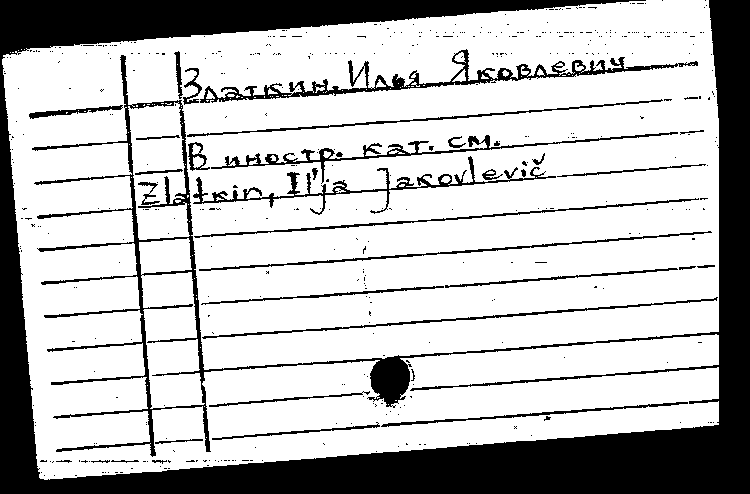 Златкин, Илья Яковлевич
В иностр. кат. см.
Zlatkin, Il'ja Jakovlevič